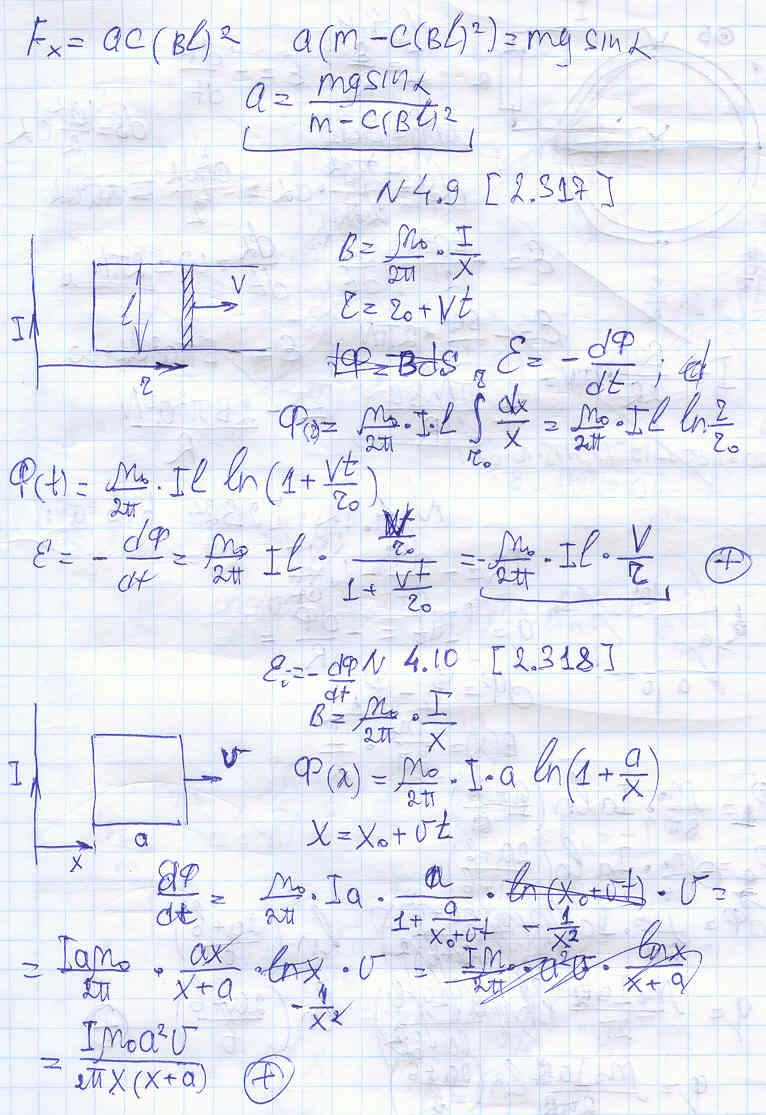 Fx = aC(Bl)² a(m − C(Bl)²) = mg sin α
a = mg sin α / (m − C(Bl)²)
N 4.9 [2.317]
B = μ₀/2π · I/x
r = r₀ + Vt
I l V r
dΦ = BdS, ℰ = − dΦ/dt ;
Φ(r) = μ₀/2π · I · l ∫_{r₀}^{r} dx/x = μ₀/2π · Il ln r/r₀
Φ(t) = μ₀/2π · Il ln(1 + Vt/r₀)
ℰ = − dΦ/dt = μ₀/2π Il · (V/r₀) / (1 + Vt/r₀) = − μ₀/2π · Il · V/r +
ℰi = − dΦ/dt N 4.10 [2.318]
B = μ₀/2π · I/x
I v x a
Φ(x) = μ₀/2π · I · a ln(1 + a/x)
x = x₀ + vt
dΦ/dt = μ₀/2π · Ia · a / (1 + a/(x₀ + vt)) · ln(x₀ + vt) − 1/x² · v =
= Iaμ₀/2π · ax/(x + a) · ln x − 1/x² · v = Iμ₀/2π · a²v · ln x/(x + a)
= Iμ₀a²v / 2πx(x + a) +